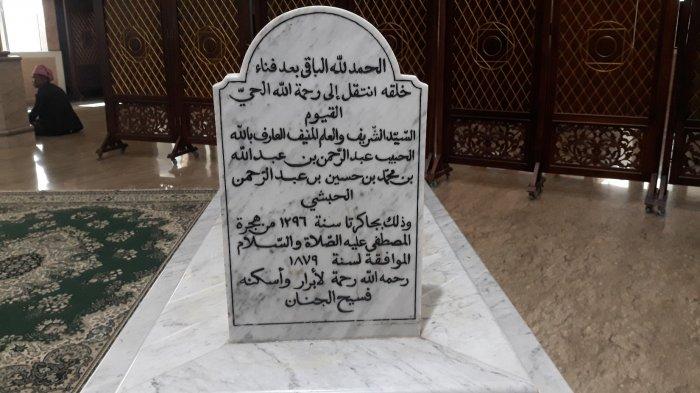 الحمد لله الباقي بعد فناء
خلقه انتقل إلى رحمة الله الحيّ
القيوم
السيّد الشّريف والعلم المنيف العارف بالله
الحبيب عبد الرّحمن بن عبد الله
بن محمّد بن حسين بن عبد الرّحمن
الحبشي
وذلك بجاكرتا سنة ١٢٩٦ من هجرة
المصطفى عليه الصّلاة والسّلام
الموافقة لسنة ١٨٧٩
رحمه الله رحمة لأبرار وأسكنه
فسيح الجنان